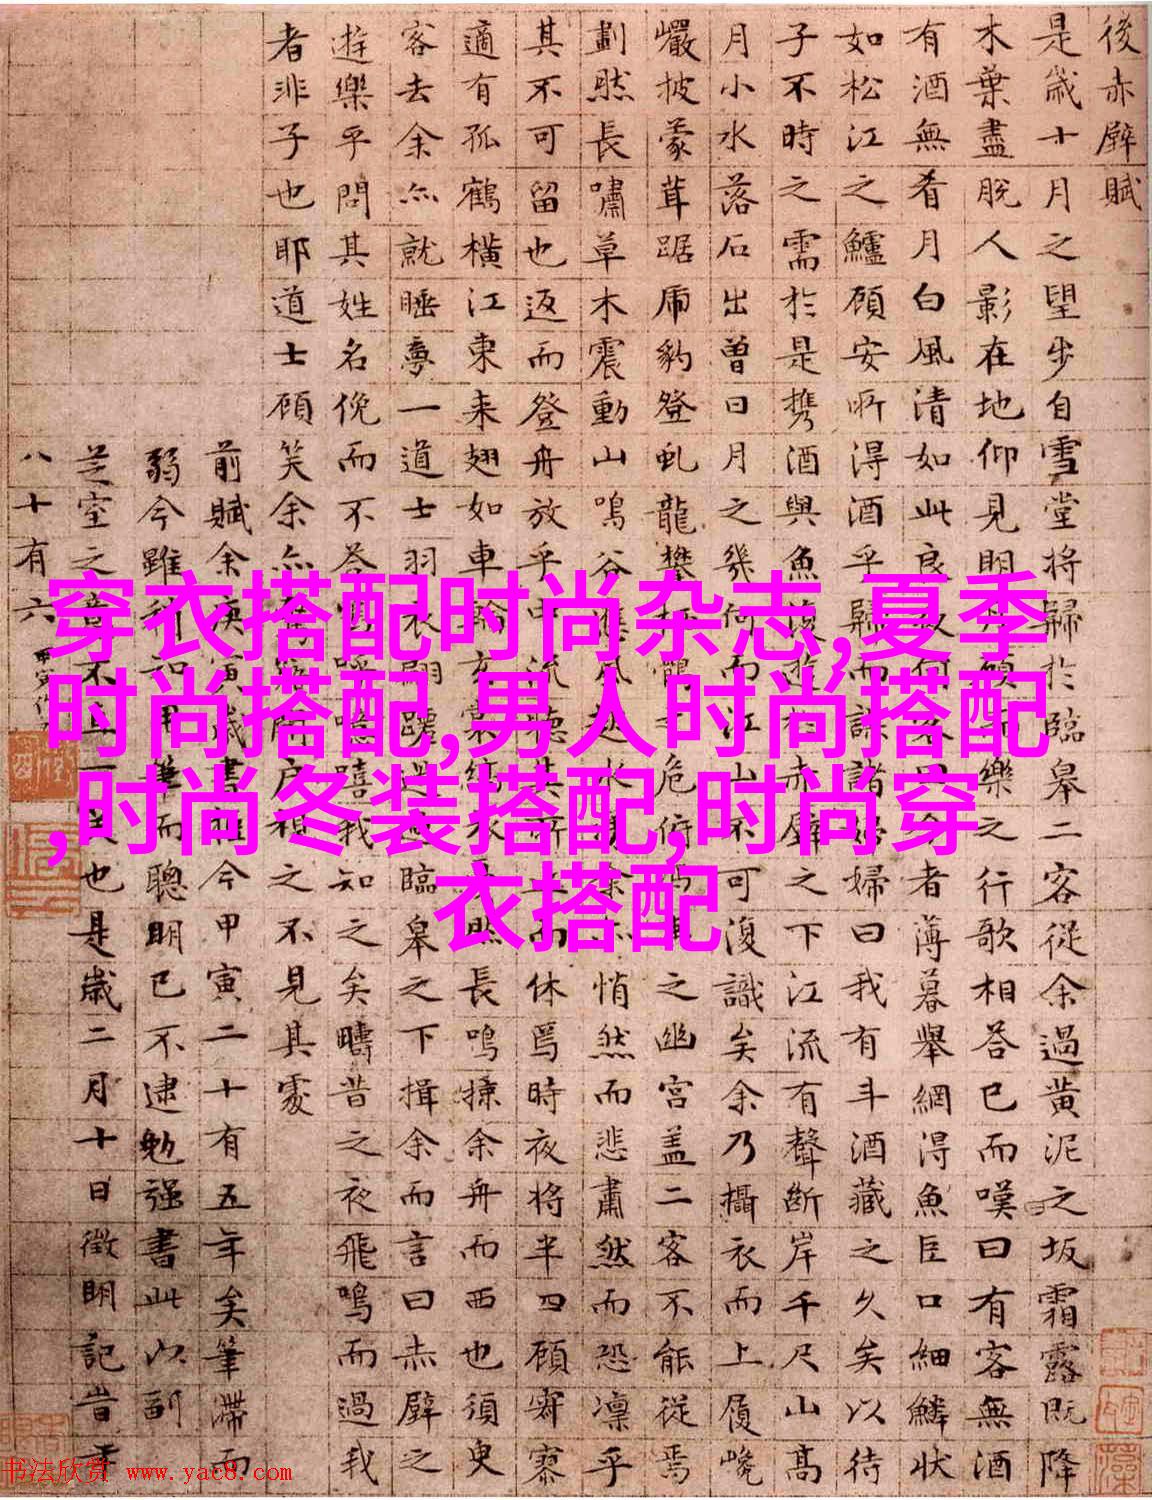 後赤壁賦
是歲十月之望步自雪堂將歸於臨皋二客從余過黃泥之坂霜露既降
木葉盡脫人影在地仰見明月顧而樂之行歌相答已而嘆曰有客無酒
有酒無肴月白風清如此良夜何客曰今者薄暮舉網得魚巨口細鱗狀
如松江之鱸顧安所得酒乎歸而謀諸婦婦曰我有斗酒藏之久矣以待
子不時之需於是攜酒與魚復遊於赤壁之下江流有聲斷岸千尺山高
月小水落石出曾日月之幾何而江山不可復識矣余乃攝衣而上履巉
巖披蒙茸踞虎豹登虬龍攀栖鶻之危俯馮夷之幽宮蓋二客不能從焉
劃然長嘯草木震動山鳴谷應風起水涌余亦悄然而悲肅然而恐凜乎
其不可留也返而登舟放乎中流聽其所止而休焉時夜將半四顧寂寥
適有孤鶴橫江東來翅如車輪玄裳縞衣戛然長鳴掠余舟而西也須臾
客去余亦就睡夢一道士羽衣翩躚過臨皋之下揖余而言曰赤壁之
遊樂乎問其姓名俛而不答嗚呼噫嘻我知之矣疇昔之夜飛鳴而過我
者非子也耶道士顧笑余亦驚寤開戶視之不見其處
前賦余庚寅歲書距今甲寅二十有五年矣筆滯而
弱今雖稍知用筆而聰明已不逮勉强書此以副
芝室之意不直一笑也是歲二月十日徵明記旹年
八十有六
穿衣搭配时尚杂志,夏季
时尚搭配,男人时尚搭配
,时尚冬装搭配,时尚穿
衣搭配
书法欣赏 www.yac8.com